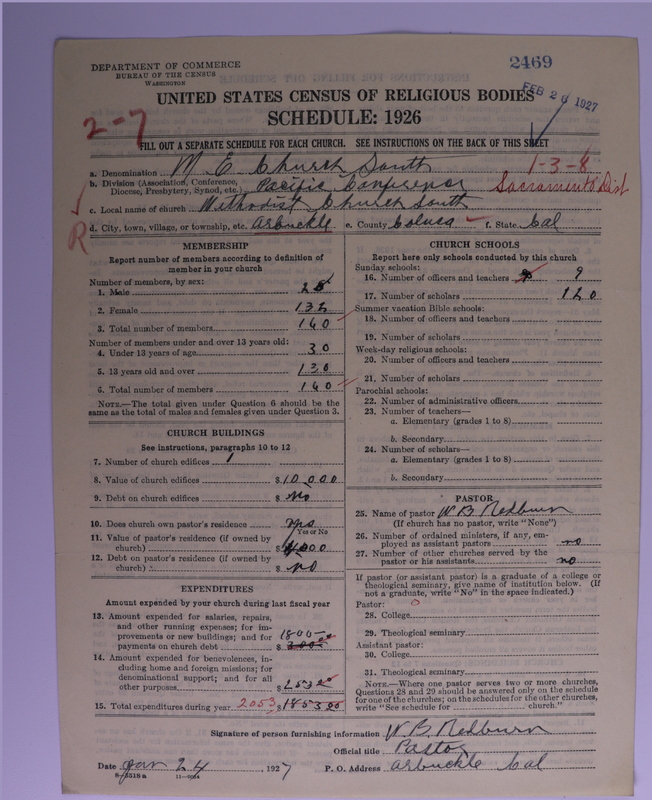 2469
DEPARTMENT OF COMMERCE
BUREAU OF THE CENSUS
WASHINGTON
FEB 26 1927
UNITED STATES CENSUS OF RELIGIOUS BODIES
SCHEDULE: 1926
2-7
FILL OUT A SEPARATE SCHEDULE FOR EACH CHURCH. SEE INSTRUCTIONS ON THE BACK OF THIS SHEET
a. Denomination M E Church South
1-3-8
b. Division (Association, Conference, Diocese, Presbytery, Synod, etc.) Pacific Conference Sacramento Dist
c. Local name of church Methodist Church South
R
d. City, town, village, or township, etc. Arbuckle e. County Colusa f. State Cal
MEMBERSHIP
Report number of members according to definition of
member in your church
Number of members, by sex:
1. Male 28
2. Female 132
3. Total number of members 160
Number of members under and over 13 years old:
4. Under 13 years of age 30
5. 13 years old and over 130
6. Total number of members 160
NOTE.—The total given under Question 6 should be
same as the total of males and females given under Question 3.
CHURCH BUILDINGS
See instructions, paragraphs 10 to 12
7. Number of church edifices 1
8. Value of church edifices $10,000
9. Debt on church edifices $ No
10. Does church own pastor's residence yes
Yes or No
11. Value of pastor's residence (if owned by
church) $ 4000
12. Debt on pastor's residence (if owned by
church) $ No
EXPENDITURES
Amount expended by your church during last fiscal year
13. Amount expended for salaries, repairs,
and other running expenses; for im-
provements or new buildings; and for
payments on church debt 1800 $
14. Amount expended for benevolences, in-
cluding home and foreign missions; for
denominational support; and for all
other purposes $ 253
15. Total expenditures during year 2053 $ 1853
CHURCH SCHOOLS
Report here only schools conducted by this church
Sunday schools:
16. Number of officers and teachers 9
17. Number of scholars 120
Summer vacation Bible schools:
18. Number of officers and teachers
19. Number of scholars
Week-day religious schools:
20. Number of officers and teachers
21. Number of scholars
Parochial schools:
22. Number of administrative officers
23. Number of teachers—
a. Elementary (grades 1 to 8)
b. Secondary
24. Number of scholars—
a. Elementary (grades 1 to 8)
b. Secondary
PASTOR
25. Name of pastor W B Redburn
(If church has no pastor, write "None")
26. Number of ordained ministers, if any, em-
ployed as assistant pastors no
27. Number of other churches served by the
pastor or his assistants no
If pastor (or assistant pastor) is a graduate of a college or
theological seminary, give name of institution below. (If
not a graduate, write "No" in the space indicated.)
Pastor: 0
28. College
29. Theological seminary
Assistant pastor:
30. College
31. Theological seminary
NOTE.—Where one pastor serves two or more churches,
Questions 28 and 29 should be answered only on the schedule
for one of the churches; on the schedules for the other churches,
write "See schedule for church."
Signature of person furnishing information W. B. Redburn
Official title Pastor
Date Jan 24, 1927 P. O. Address Arbuckle Cal